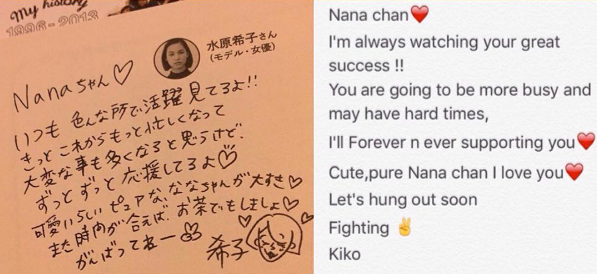 My history
1996-2013
水原希子さん
(モデル・女優)
Nanaちゃん♡
いつも 色んな所で活躍見てるよ!!
きっと これからもっと忙しくなって
大変な事も多くなると思うけど、
ずっと ずっと 応援してるよ♡
可愛いらしい ピュアな、ななちゃんが大すき♡
また 時間が合えば、お茶でもしましょ♡
がんばってねー✌
希子
Nana chan❤️
I'm always watching your great
success !!
You are going to be more busy and
may have hard times,
I'll Forever n ever supporting you❤️
Cute,pure Nana chan I love you❤️
Let's hung out soon
Fighting ✌️
Kiko